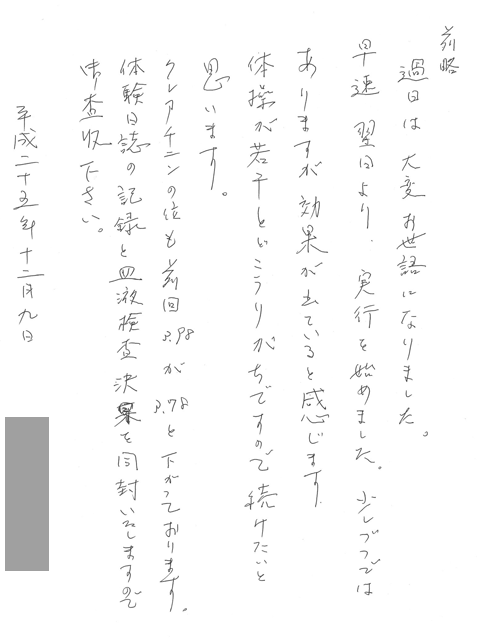 前略
過日は大変お世話になりました。
早速翌日より、実行を始めました。少しづつでは
ありますが効果が出ていると感じます。
体操が若干とどこうりがちですので続けたいと
思います。
クレアチニンの位も前回3.98が3.78と下がっております。
体験日誌の記録と血液検査決果を同封いたしますので
御査収下さい。
平成二十五年十二月九日